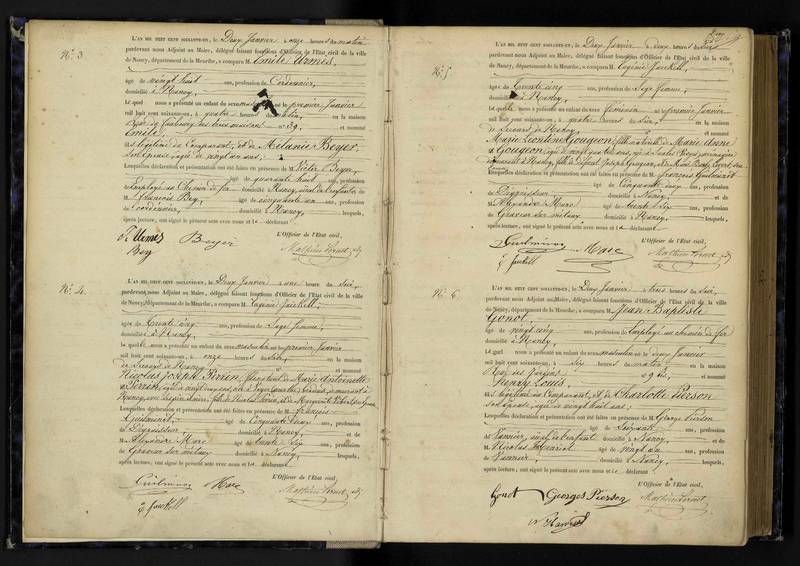 N.° 3.
L'AN MIL HUIT CENT SOIXANTE-UN, le Deux Janvier à onze heures du matin
pardevant nous Adjoint au Maire, délégué faisant fonctions d'Officier de l'Etat civil de la ville
de Nancy, département de la Meurthe, a comparu M. Emile
âgé de vingt huit ans, profession de Cordonnier,
domicilié à Nancy
Lequel nous a présenté un enfant du sexe le premier Janvier
mil huit cent soixante-un, à quatre heures du matin, en la maison
Rue du faubourg des trois maisons n° 39, et nommé
Emile,
fils légitime du Comparant, et de Mélanie Beyer,
son épouse, agée de vingt un ans,
Lesquelles déclaration et présentation ont été faites en présence de M. Victor Beyer,
âgé de quarante huit ans, profession
d'Employé au Chemin de fer domicilié à Nancy, aïeul de l'enfant, et de
M. François Bey âgé de cinquante un ans, profession
de Cordonnier, domicilié à Nancy, lesquels,
après lecture, ont signé le présent acte avec nous et le déclarant
L'Officier de l'Etat civil,
Beyer
Bey
N.° 4.
L'AN MIL HUIT CENT SOIXANTE-UN, le Deux Janvier à une heure du soir,
pardevant nous Adjoint au Maire, délégué faisant fonctions d'Officier de l'Etat civil de la ville
de Nancy, département de la Meurthe, a comparu M. Eugénie
âgée de Trente cinq ans, profession de Sage femme,
domiciliée à Nancy
Laquelle nous a présenté un enfant du sexe masculin né le premier Janvier
mil huit cent soixante-un, à onze heures du soir, en la maison
de Secours de Nancy et nommé
Nicolas Joseph Perrin, fils naturel de Marie Antoinette
Perrin, agée de vingt
Lesquelles déclaration et présentation ont été faites en présence de M. françois
Guilminot, âgé de Cinquante deux ans, profession
de domicilié à Nancy, et de
M. Alexandre Marc âgé de trente six ans, profession
de Graveur sur métaux domicilié à Nancy, lesquels,
après lecture, ont signé le présent acte avec nous et la déclarant
L'Officier de l'Etat civil,
Guilminot Marc
N.° 5.
L'AN MIL HUIT CENT SOIXANTE-UN, le Deux Janvier à deux heures du soir
pardevant nous Adjoint au Maire, délégué faisant fonctions d'Officier de l'Etat civil de la ville
de Nancy, département de la Meurthe, a comparu M. Eugénie
âgée de Trente cinq ans, profession de Sage femme,
domiciliée à Nancy
Laquelle nous a présenté un enfant du sexe féminin né le premier Janvier
mil huit cent soixante-un, à quatre heures du soir, en la maison
de Secours de Nancy et nommé
Marie Léontine Gougeon, fille naturelle de Marie Anne
Gougeon
Lesquelles déclaration et présentation ont été faites en présence de M. françois Guilminot
âgé de Cinquante deux ans, profession
de domicilié à Nancy, et de
M. Alexandre Marc âgé de trente six ans, profession
de Graveur sur métaux domicilié à Nancy, lesquels,
après lecture, ont signé le présent acte avec nous et la déclarant
L'Officier de l'Etat civil,
Guilminot Marc
N.° 6
L'AN MIL HUIT CENT SOIXANTE-UN, le Deux Janvier à trois heures du soir,
pardevant nous Adjoint au Maire, délégué faisant fonctions d'Officier de l'Etat civil de la ville
de Nancy, département de la Meurthe, a comparu M. Jean Baptiste
Gonot,
âgé de vingt cinq ans, profession d'Employé au chemin de fer
domicilié à Nancy,
Lequel nous a présenté un enfant du sexe masculin né le deux Janvier
mil huit cent soixante-un, à six heures du matin, en la maison
Rue des Jardins, n° 9 bis, et nommé
Henry Louis,
fils légitime du Comparant, et de Charlotte Pierson
son épouse, agée de vingt huit ans,
Lesquelles déclaration et présentation ont été faites en présence de M. George Pierson
âgé de Soixante ans, profession
de Vannier, aïeul de l'enfant domicilié à Nancy, et de
M. Nicolas Henriot âgé de vingt un ans, profession
de Vannier, domicilié à Nancy, lesquels,
après lecture, ont signé le présent acte avec nous et le déclarant
L'Officier de l'Etat civil,
Gonot Georges Pierson